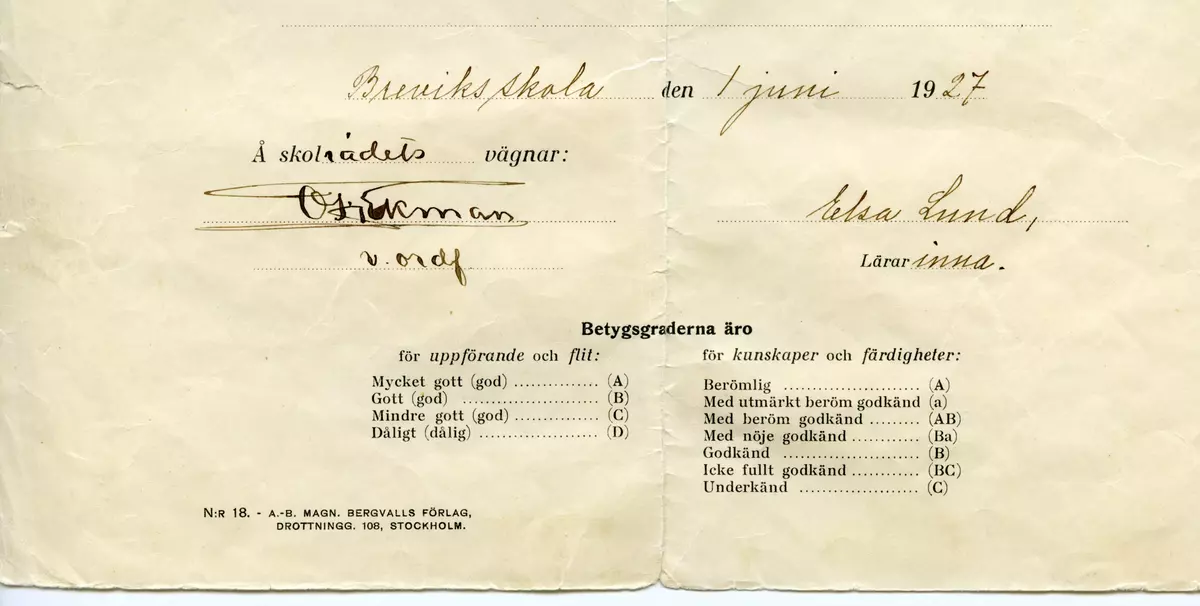 Breviks skola den 1 juni 1927
Å skolrådets vägnar:
Ekman
Elsa Lund,
v. ordf
Lärarinna.
Betygsgraderna äro
för uppförande och flit:
Mycket gott (god) ............... (A)
Gott (god) ........................ (B)
Mindre gott (god) ............... (C)
Dåligt (dålig) ..................... (D)
för kunskaper och färdigheter:
Berömlig ........................ (A)
Med utmärkt beröm godkänd (a)
Med beröm godkänd ......... (AB)
Med nöje godkänd ............ (Ba)
Godkänd ........................ (B)
Icke fullt godkänd ............ (BC)
Underkänd ..................... (C)
N:R 18. - A.-B. MAGN. BERGVALLS FÖRLAG,
DROTTNINGG. 108, STOCKHOLM.